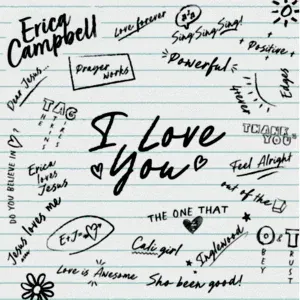 Erica
Campbell
Love forever
Sing Sing Sing!
+ Positive +
Dear Jesus...
Prayer
works
Powerful
4ever
Edges
TAG
THE
ARTISTS
I Love
You
THANK
YOU
DO YOU BELIEVE IN
?
Erica
loves
Jesus
Feel Alright
out of the
Jesus loves me
E+J=
THE ONE THAT
Cali girl
Inglewood
O & T
OBEY
TRUST
Love is Awesome
Sho been good!